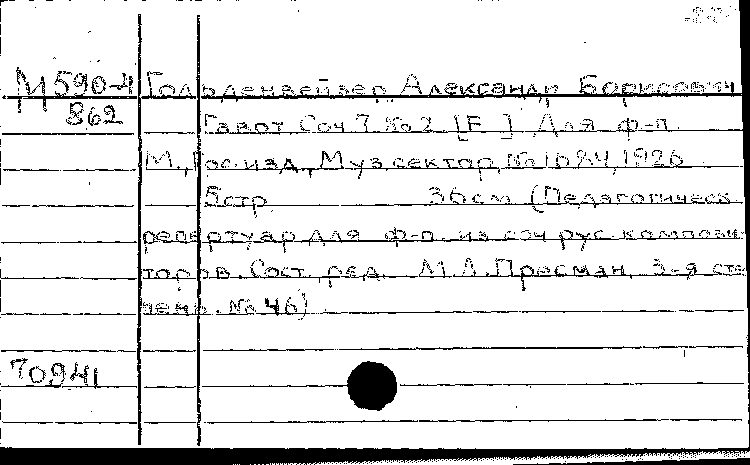 М590-4 Гольденвейзер, Александр Борисович
862 Гавот. Соч. 7 № 2 [F ] Для ф-п.
М., Гос. изд., Муз. сектор, 1926
5 стр. 36 см (Педагогическ.
репертуар для ф-п. из соч. рус. компози-
торов. Сост. ред. М.Л. Пресман, 3-я сте-
пень. № 46)
70941